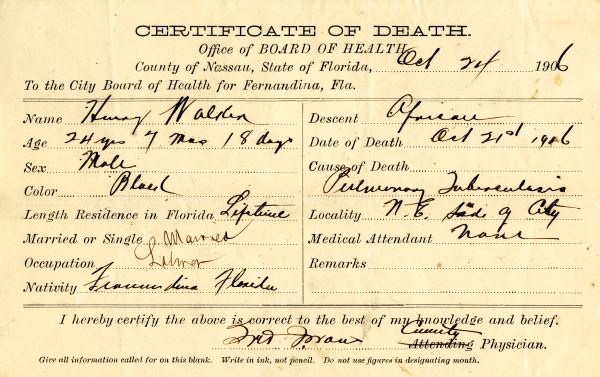 CERTIFICATE OF DEATH.
Office of BOARD OF HEALTH
County of Nassau, State of Florida, Oct 24 1906
To the City Board of Health for Fernandina, Fla.
Name Henry Walden
Age 24 yrs 7 mos 18 days
Sex Male
Color Black
Length Residence in Florida Lifetime
Married or Single Married
Occupation Labrer
Nativity Fernandina Florida
Descent African
Date of Death Oct 21st 1906
Cause of Death
Pulmonary Tuberculosis
Locality N.E. side of City
Medical Attendant None
Remarks
I hereby certify the above is correct to the best of my knowledge and belief.
County
Attending Physician.
Give all information called for on this blank. Write in ink, not pencil. Do not use figures in designating month.